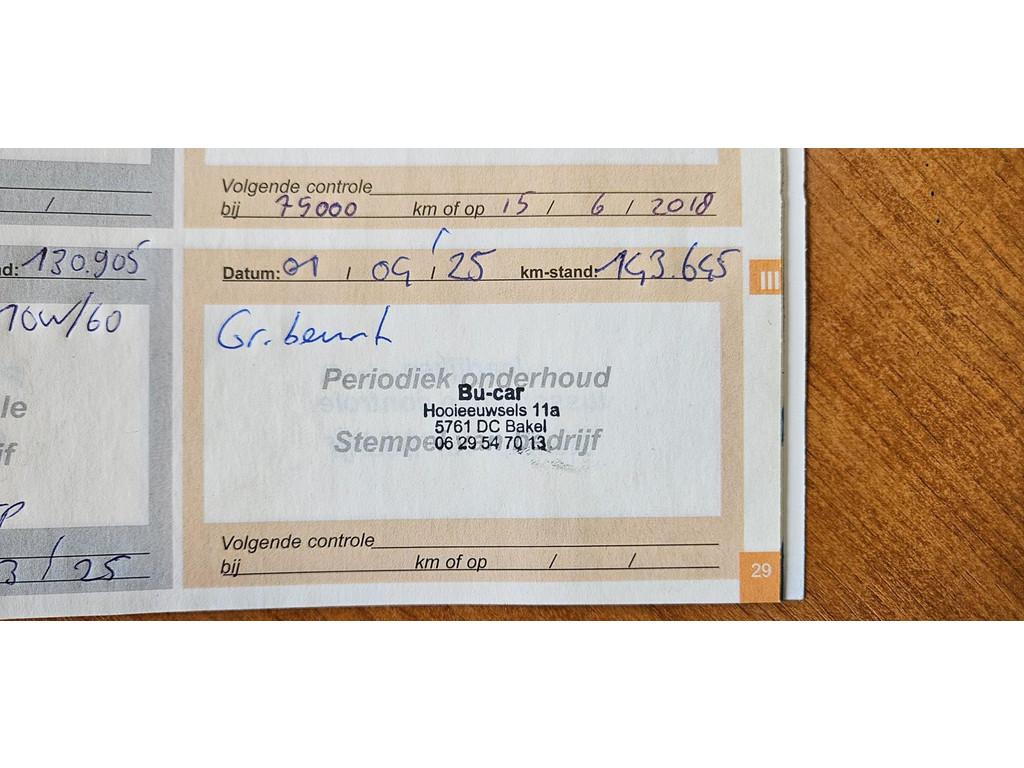 /
d: 130.905
10W/60
le
f
3 / 25
Volgende controle
bij 75000 km of op 15 / 6 / 2018
Datum: 01 / 04 / 25 km-stand: 143.645
III
Gr. beurt
Periodiek onderhoud
Bu-car
Hooieeuwsels 11a
5761 DC Bakel
Stempel van bedrijf
06 29 54 70 13
Volgende controle
bij km of op / /
29